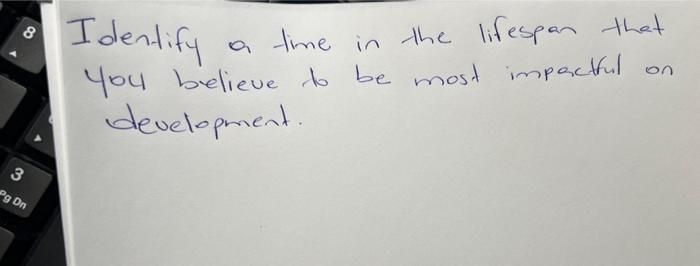 8
Identify a time in the lifespan that
you believe to be most impactful on
development.
3
Pg Dn